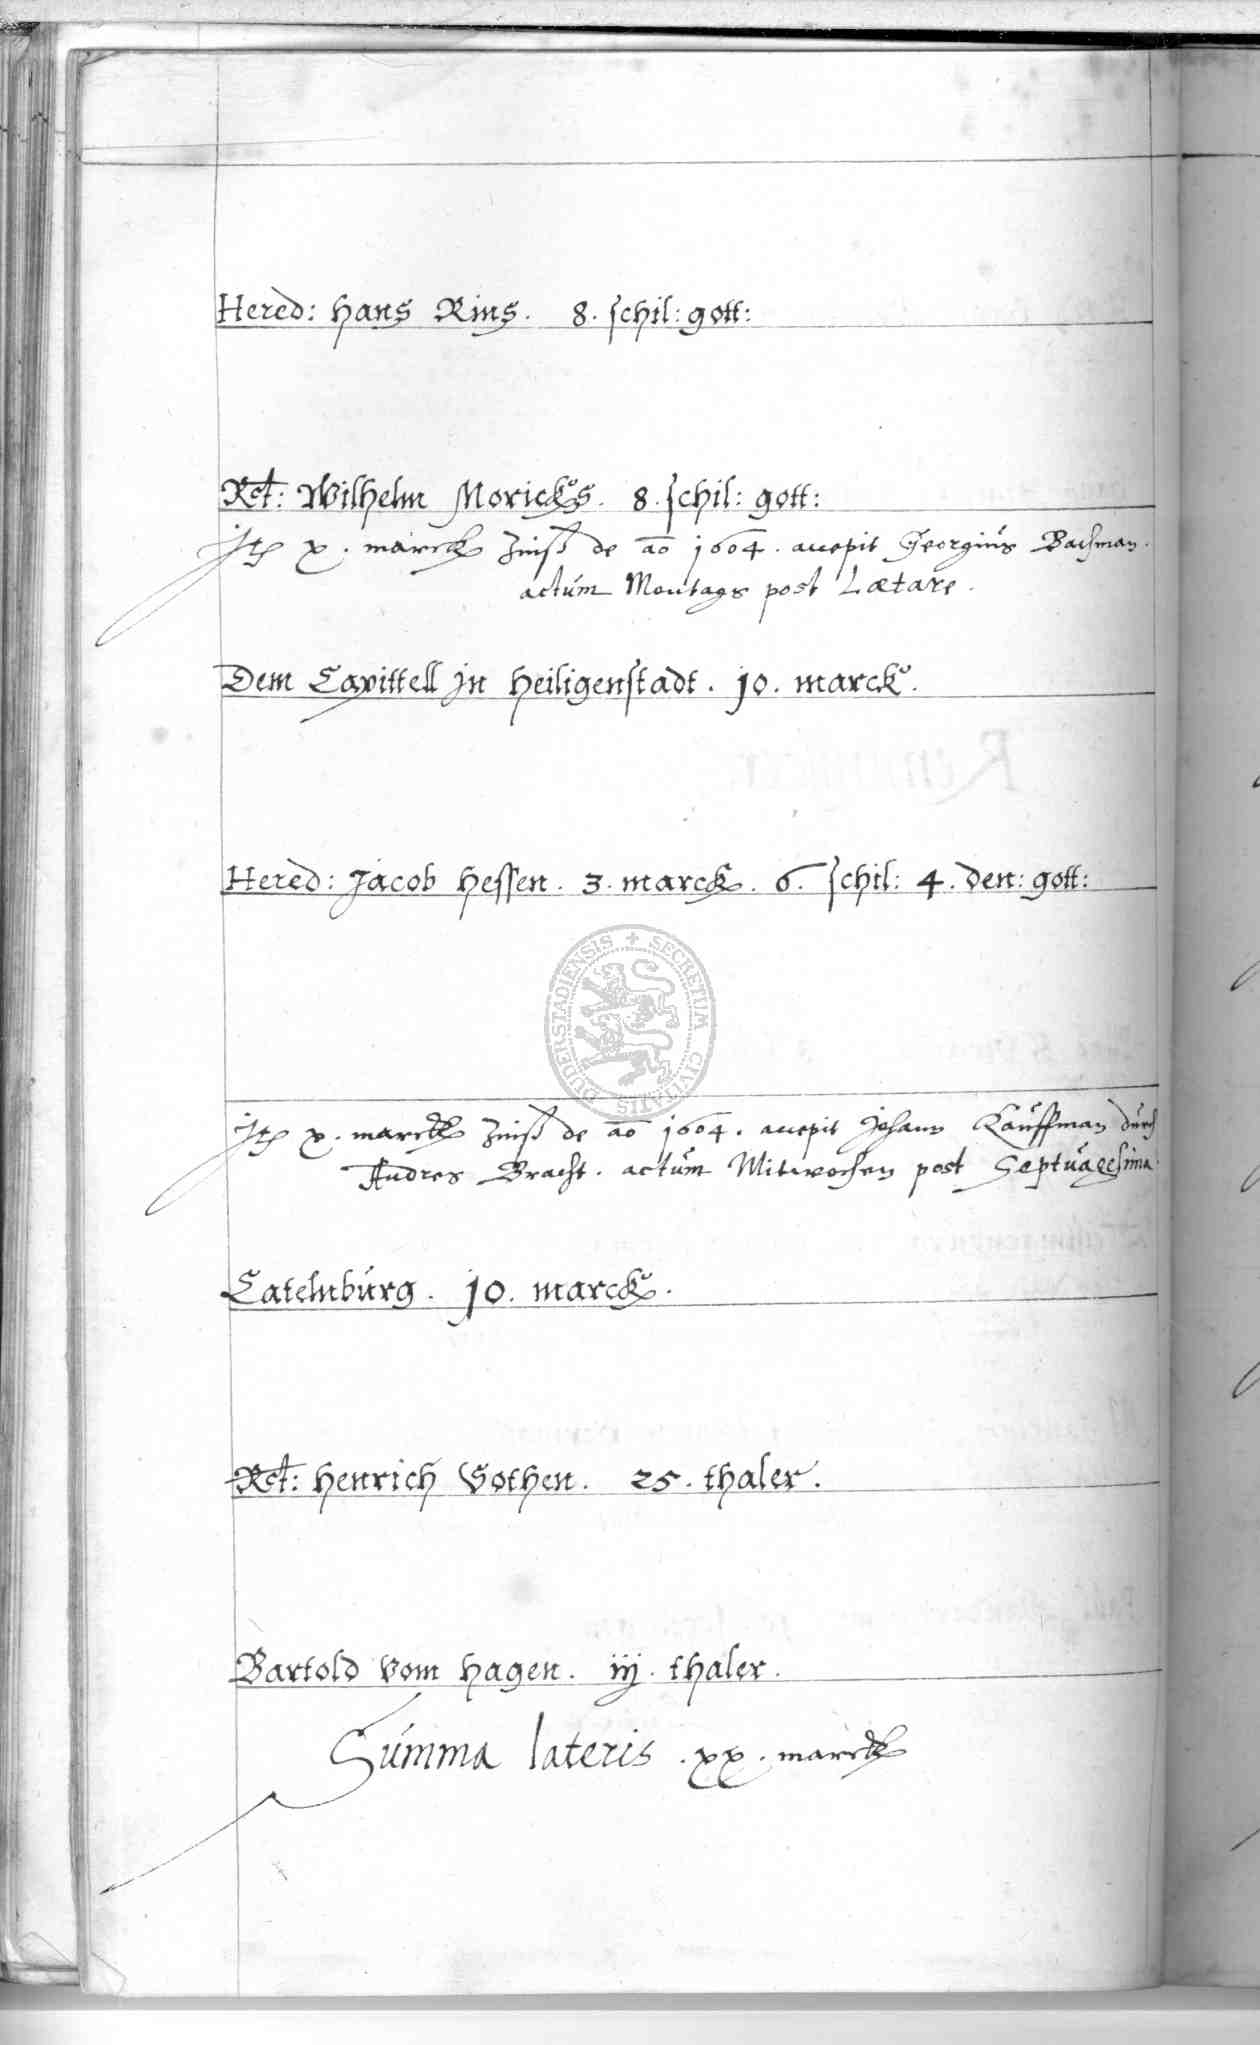 Hered: Hans Rins. 8. schil: gott:
Rct: Wilhelm Moricks. 8. schil: gott:
Jtē x. marck Zinß de ao 1604. accepit Georgius Bachman.
actum Montags post Lætare.
Dem Capittell jn Heiligenstadt. 10. marck.
Hered: Jacob Hessen. 3. marck. 6. schil: 4. den: gott:
DUDERSTADIENSIS + SECRETUM CIVITATIS
Jtē x. marck Zinß de ao 1604. accepit Johann Kauffman durch
Andres Bracht. actum Mitwochen post Septuagesima.
Catelnburg. 10. marck.
Rct: Henrich Vothen. 25. thaler.
Bartold vom Hagen. iij. thaler.
Summa lateris .xx. marck